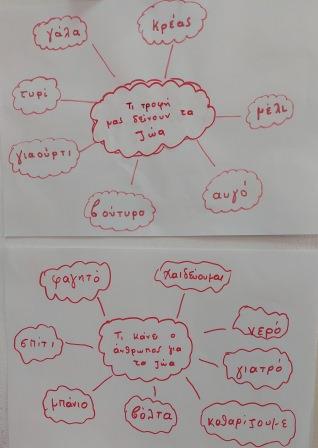 γάλα
κρέας
τυρί
Τι τροφή
μας δίνουν τα
ζώα
μέλι
γιαούρτι
αυγό
βούτυρο
φαγητό
χαιδεύουμαι
νερό
σπίτι
Τι κάνει ο
άνθρωπος για
τα ζώα
γιατρό
μπάνιο
βόλτα
καθαρίζουμε